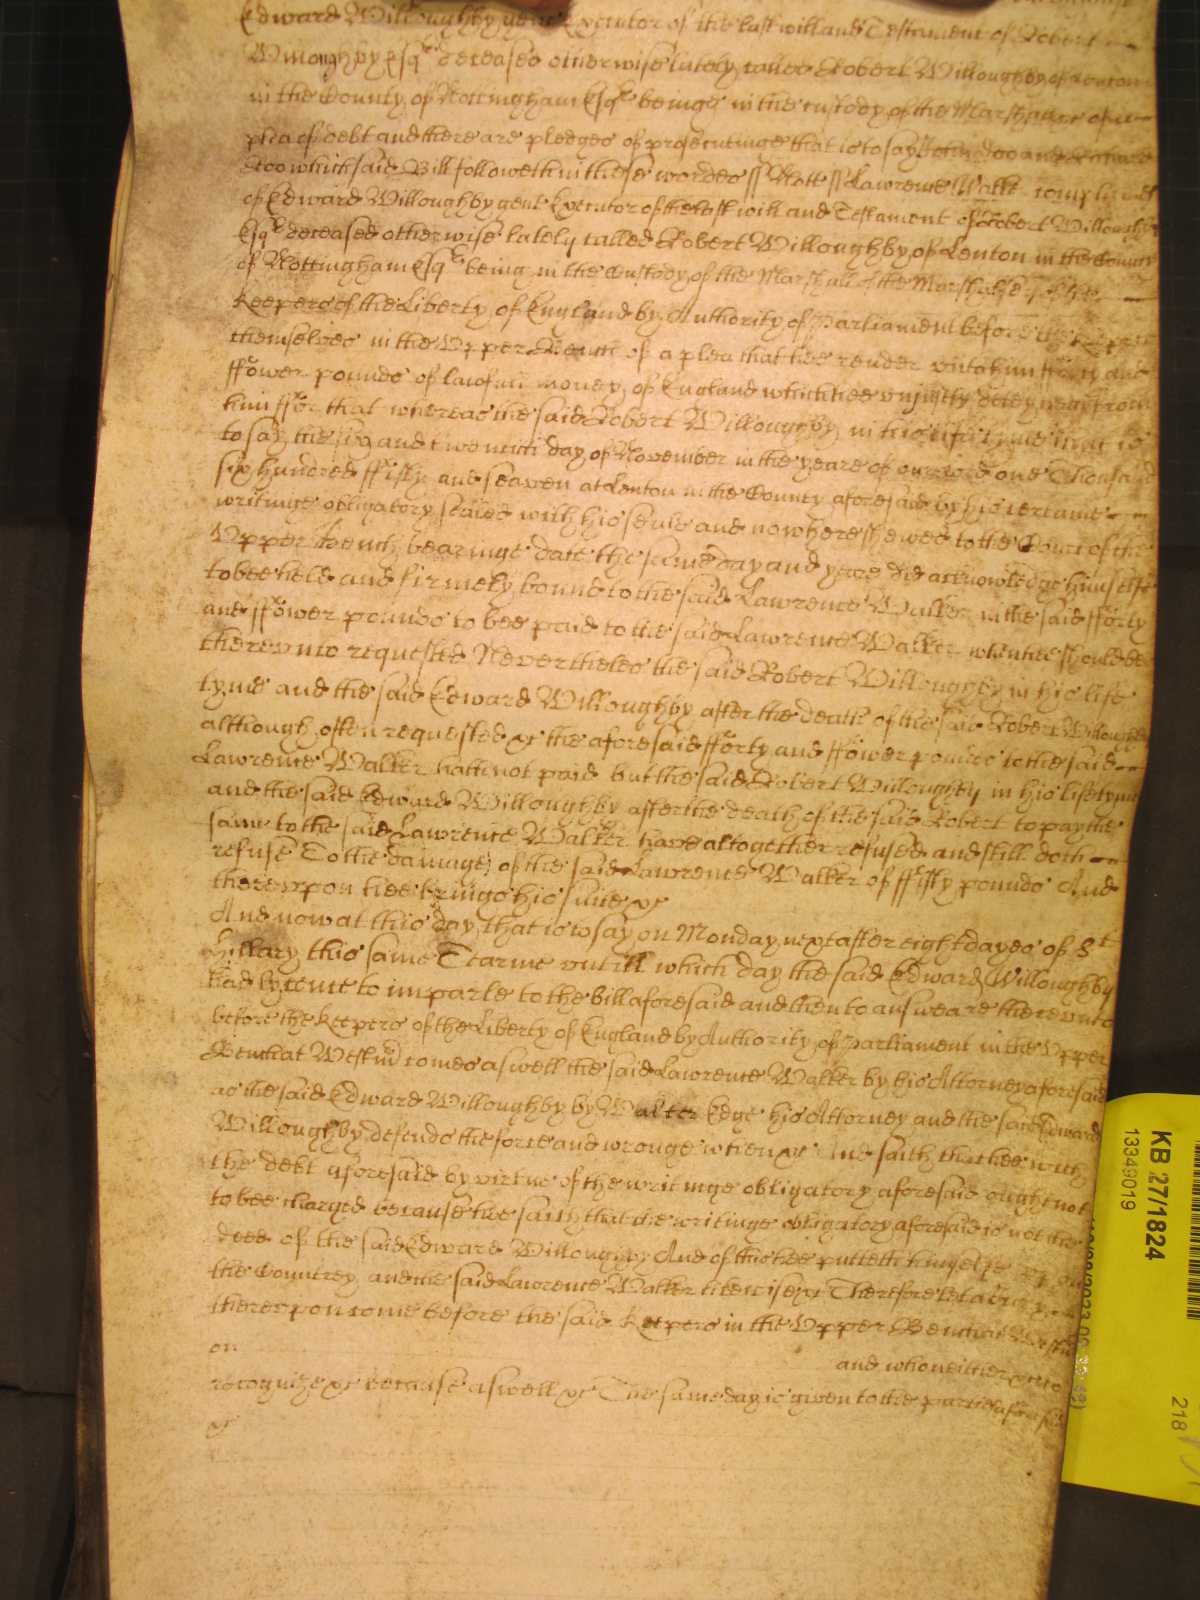 Edward Willoughby gent Executor of the last will and Testament of Robert
Willoughby Esqr deceased otherwise lately called Robert Willoughby of Lenton
in the County of Nottingham Esqr beinge in the custody of the Marshall &c of a
plea of debt and there are pledges of prosecutinge that is to say John Doo and Richard
Roo which said Bill followeth in these wordes ss Nott ss Lawrence Walker complaines
of Edward Willoughby gent Executor of the last will and Testament of Robert Willoughby
Esqr deceased otherwise lately called Robert Willoughby of Lenton in the County
of Nottingham Esqr being in the Custody of the Marshall of the Marshalsey of the
Keepers of the Liberty of England by Authority of Parliament before the keepers
themselves in the Upper Bench of a plea that hee render unto him fforty and
ffower pounds of lawfull money of England which hee unjustly deteynes from
him ffor that whereas the said Robert Willoughby in his life tyme that is
to say the six and twentith day of November in the yeare of our Lord one Thousand
six hundred ffifty and seaven at Lenton in the County aforesaid by his certaine
writinge obligatory sealed with his seale and now here shewed to the Court of the
Upper Bench bearinge date the same day and yeare did acknowledge himselfe
to bee held and firmely bound to the said Lawrence Walker in the said fforty
and ffower pounds to bee paid to the said Lawrence Walker when hee should bee
thereunto requested Nevertheles the said Robert Willoughby in his life
tyme and the said Edward Willoughby after the death of the said Robert Willoughby
although often requested &c the aforesaid fforty and ffower pounds to the said
Lawrence Walker hath not paid but the said Robert Willoughby in his lifetyme
and the said Edward Willoughby after the death of the said Robert to pay the
same to the said Lawrence Walker have altogether refused and still doth
refuse To the damage of the said Lawrence Walker of ffifty pounds And
thereupon hee brings his suite &c
And now at this day that is to say on Monday next after eight dayes of St
Hillary this same Tearme untill which day the said Edward Willoughby
had lycence to imparle to the bill aforesaid and then to answeare thereunto
before the Keepers of the Liberty of England by Authority of Parliament in the Upper
Bench at Westmr comes aswell the said Lawrence Walker by his Attorney aforesaid
as the said Edward Willoughby by Walter Edge his Attorney and the said Edward
Willoughby defends the force and wronge when &c And saith that hee with
the debt aforesaid by virtue of the writinge obligatory aforesaid ought not
to bee charged because hee saith that the writinge obligatory aforesaid is not the
deed of the said Edward Willoughby And of this hee putteth himselfe upon
the Countrey and the said Lawrence Walker likewise &c Therefore let a Jury
thereupon come before the said Keepers in the Upper Bench at Westmr
on
and who neither &c to
recognize &c because aswell &c The same day is given to the parties aforesaid
&c
KB 27/1824
13349019
218